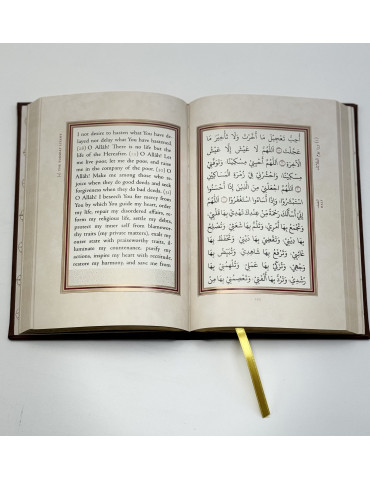 I not desire to hasten what You have de-
layed nor delay what You have hastened.
O Allāh! There is no life but the
life of the Hereafter. O Allāh! Let
me live poor, let me die poor, and raise
me in the company of the poor. O
Allāh! Make me among those who re-
joice when they do good deeds and seek
forgiveness when they do bad deeds.
O Allāh! I beseech You for mercy from
You by which You guide my heart, order
my life, repair my disordered affairs, re-
form my religion, settle my debts,
protect my inner self from blamewor-
thy traits (my private matters), exalt my
outer state with praiseworthy traits, il-
luminate my countenance, purify my
actions, inspire my heart with rectitude,
restore my harmony, and save me from
أُحِبَّ تَعْجِيلَ مَا أَخَّرْتَ وَلَا تَأْخِيرَ مَا
عَجَّلْتَ اللَّهُمَّ لَا عَيْشَ إِلَّا عَيْشُ
الْآخِرَةِ اللَّهُمَّ أَحْيِنِي مِسْكِينًا وَأَمِتْنِي
مِسْكِينًا وَاحْشُرْنِي فِي زُمْرَةِ الْمَسَاكِينِ
اللَّهُمَّ اجْعَلْنِي مِنَ الَّذِينَ إِذَا أَحْسَنُوا
اسْتَبْشَرُوا وَإِذَا أَسَاءُوا اسْتَغْفَرُوا اللَّهُمَّ
إِنِّي أَسْأَلُكَ رَحْمَةً مِنْ عِنْدِكَ تَهْدِي بِهَا قَلْبِي
وَتَجْمَعُ بِهَا أَمْرِي وَتَلُمُّ بِهَا شَعَثِي وَتُصْلِحُ
بِهَا دِينِي وَتَقْضِي بِهَا دَيْنِي وَتَحْفَظُ بِهَا
غَائِبِي وَتَرْفَعُ بِهَا شَاهِدِي وَتُبَيِّضُ بِهَا
وَجْهِي وَتُزَكِّي بِهَا عَمَلِي وَتُلْهِمُنِي بِهَا
رُشْدِي وَتَرُدُّ بِهَا أُلْفَتِي وَتَعْصِمُنِي بِهَا مِنْ